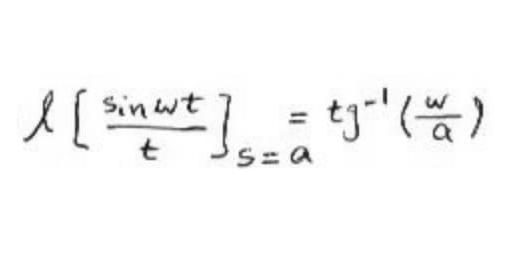 ℓ [ sin wt / t ]_{s=a} = tg⁻¹ ( w / a )